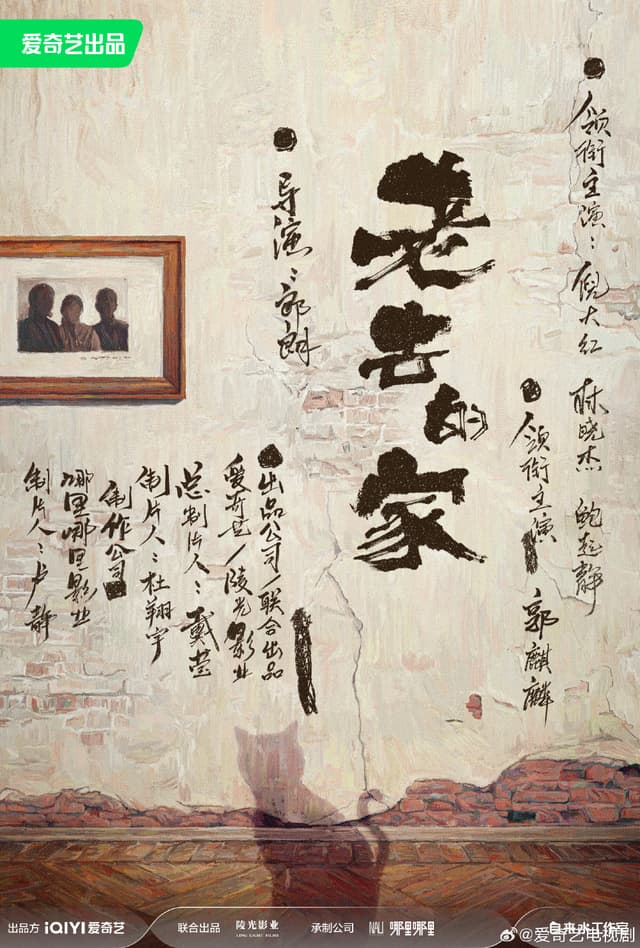 爱奇艺出品
领衔主演:倪大红
林晓杰 鲍起静
领衔主演
郭麒麟
老去的家
导演:郭朗
出品公司/联合出品
爱奇艺/陵光影业
总制片人:戴莹
制片人:杜翔宇
制作公司
哪里哪里影业
制片人:卢静
出品方 iQIYI 爱奇艺 联合出品 陵光影业 LING LIGHT FILMS 承制公司 NALI 哪里哪里 自来水工作室
@爱奇艺电视剧